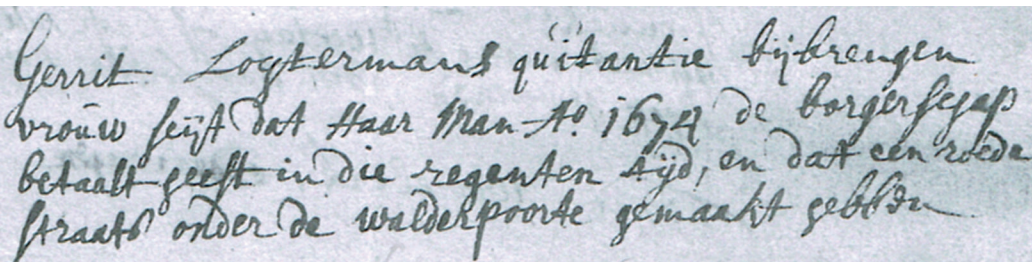 Gerrit Logtermans quitantie bijbrengen
vrouw seijt dat Haar Man Ao. 1674 de borgerschap
betaalt heeft in die regenten tijd, en dat een roede
straats onder de walderpoorte gemaakt hebben